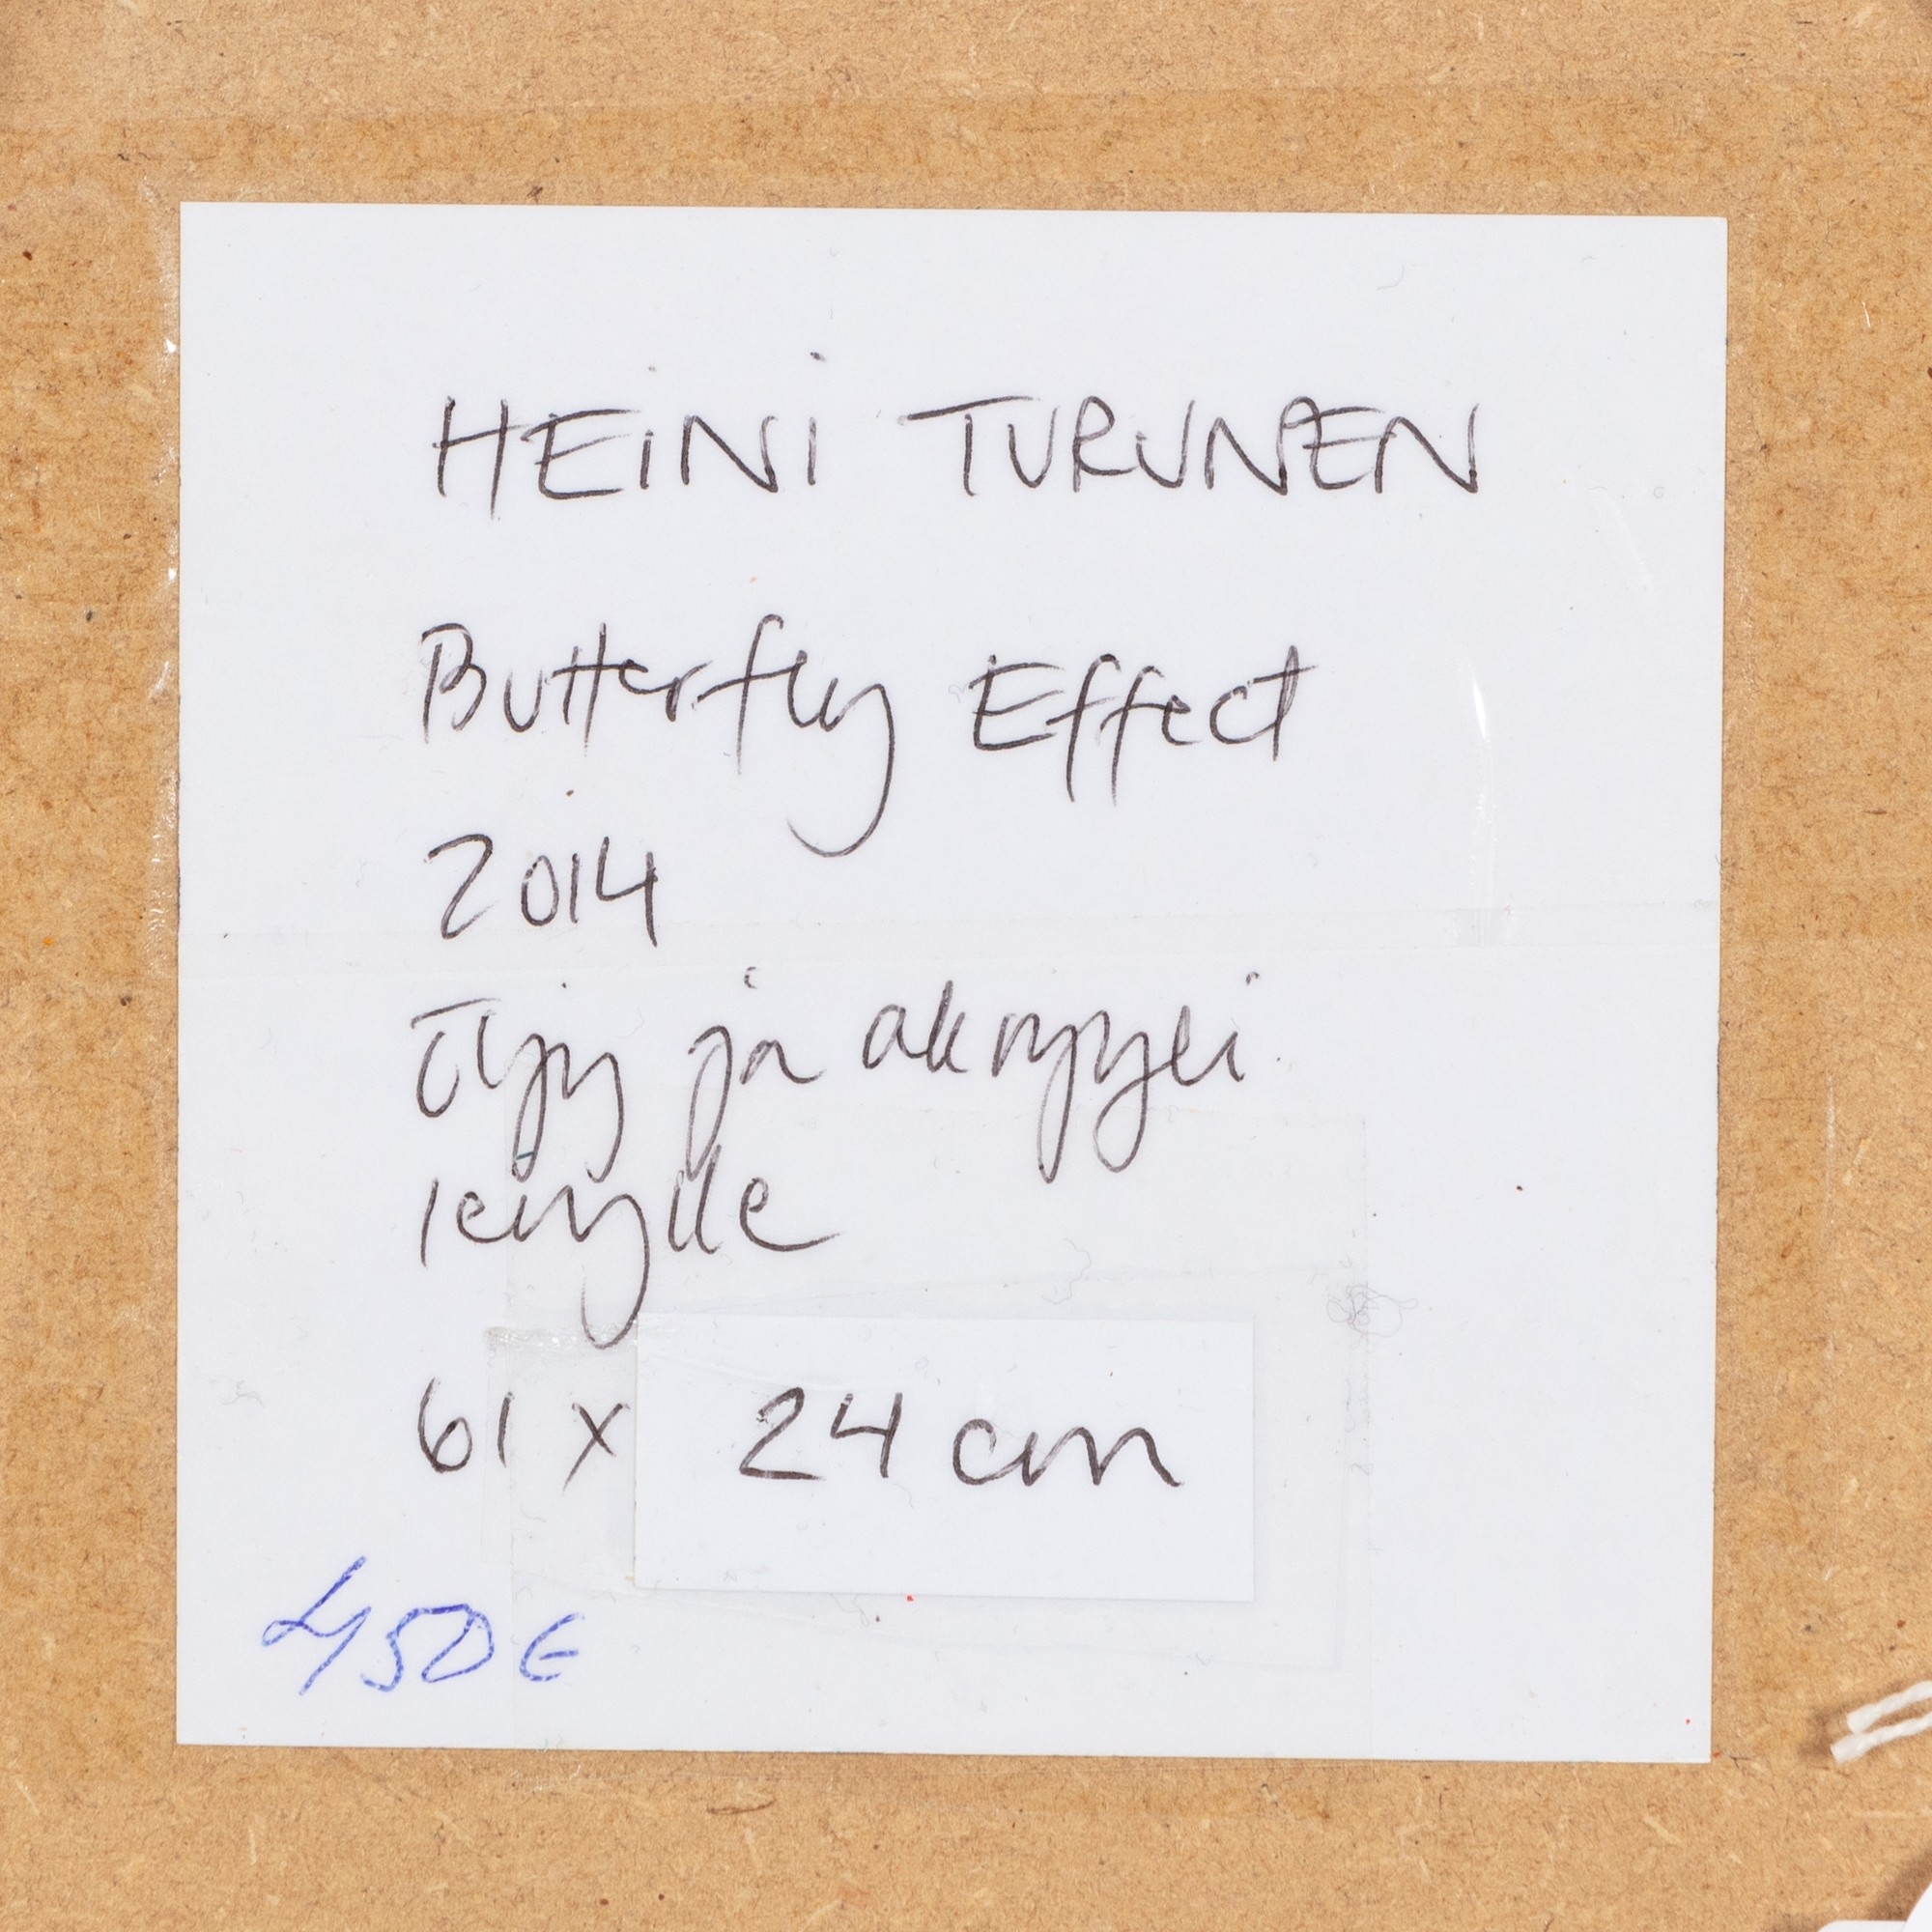 HEINI TURUNEN
Butterfly Effect
2014
Öljy ja akryyli
levylle
61 x 24 cm
450 €